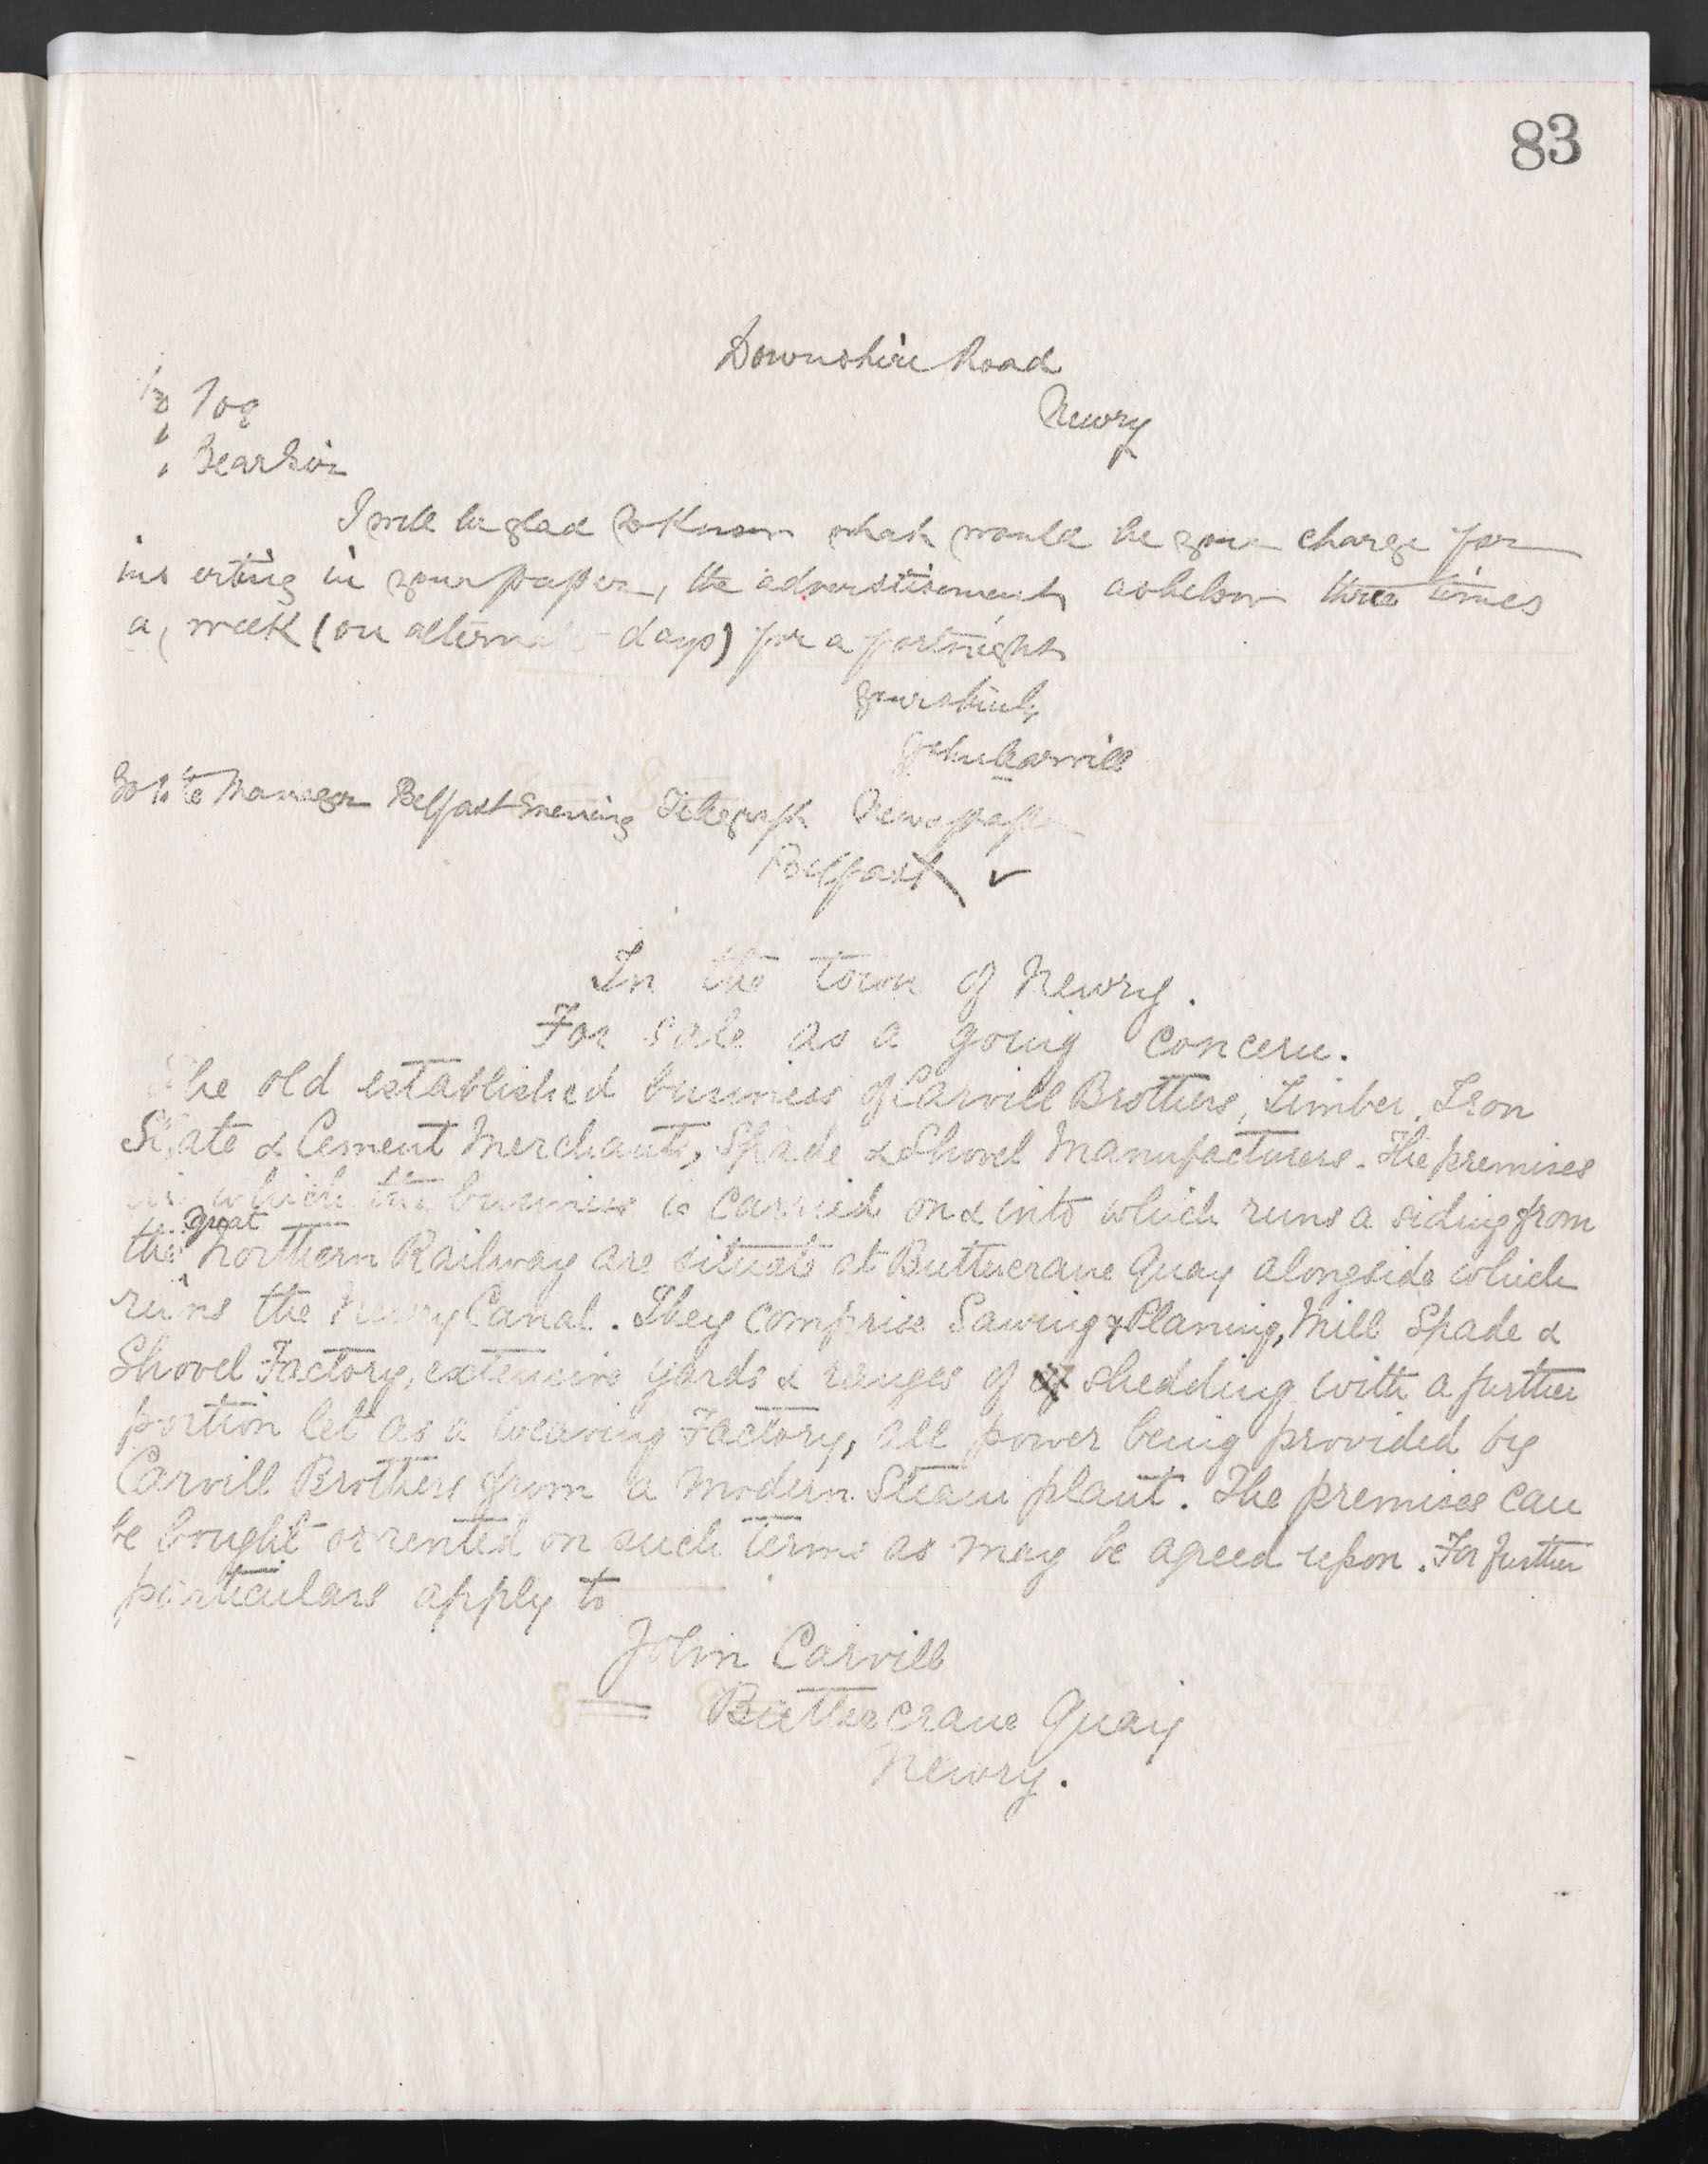 83
Downshire Road
Newry
Dear Sir
I will be glad to Know what would be your charge for
ins erting in your paper, the advertisement as below three times
a week (on alterna days) for a fortnight
yours truly
John Carvill
To the Manager Belfast Evening Telegraph Newspaper
Belfast ✓
In the town of Newry.
For sale as a going concern.
The old established business of Carvill Brothers, Timber, Iron
Slate & Cement Merchants, Spade & Shovel Manufacturers. The premises
in which the business is carried on & into which runs a siding from
the great Northern Railway are situate at Buttercrane Quay alongside which
runs the Newry Canal. They comprise Sawing & Planing, Mill Spade &
Shovel Factory, extensive yards & ranges of shedding with a further
portion let as a weaving Factory, all power being provided by
Carvill Brothers from a modern Steam plant. The premises can
be bought or rented on such terms as may be agreed upon. For further
particulars apply to
John Carvill
Buttercrane Quay
Newry.